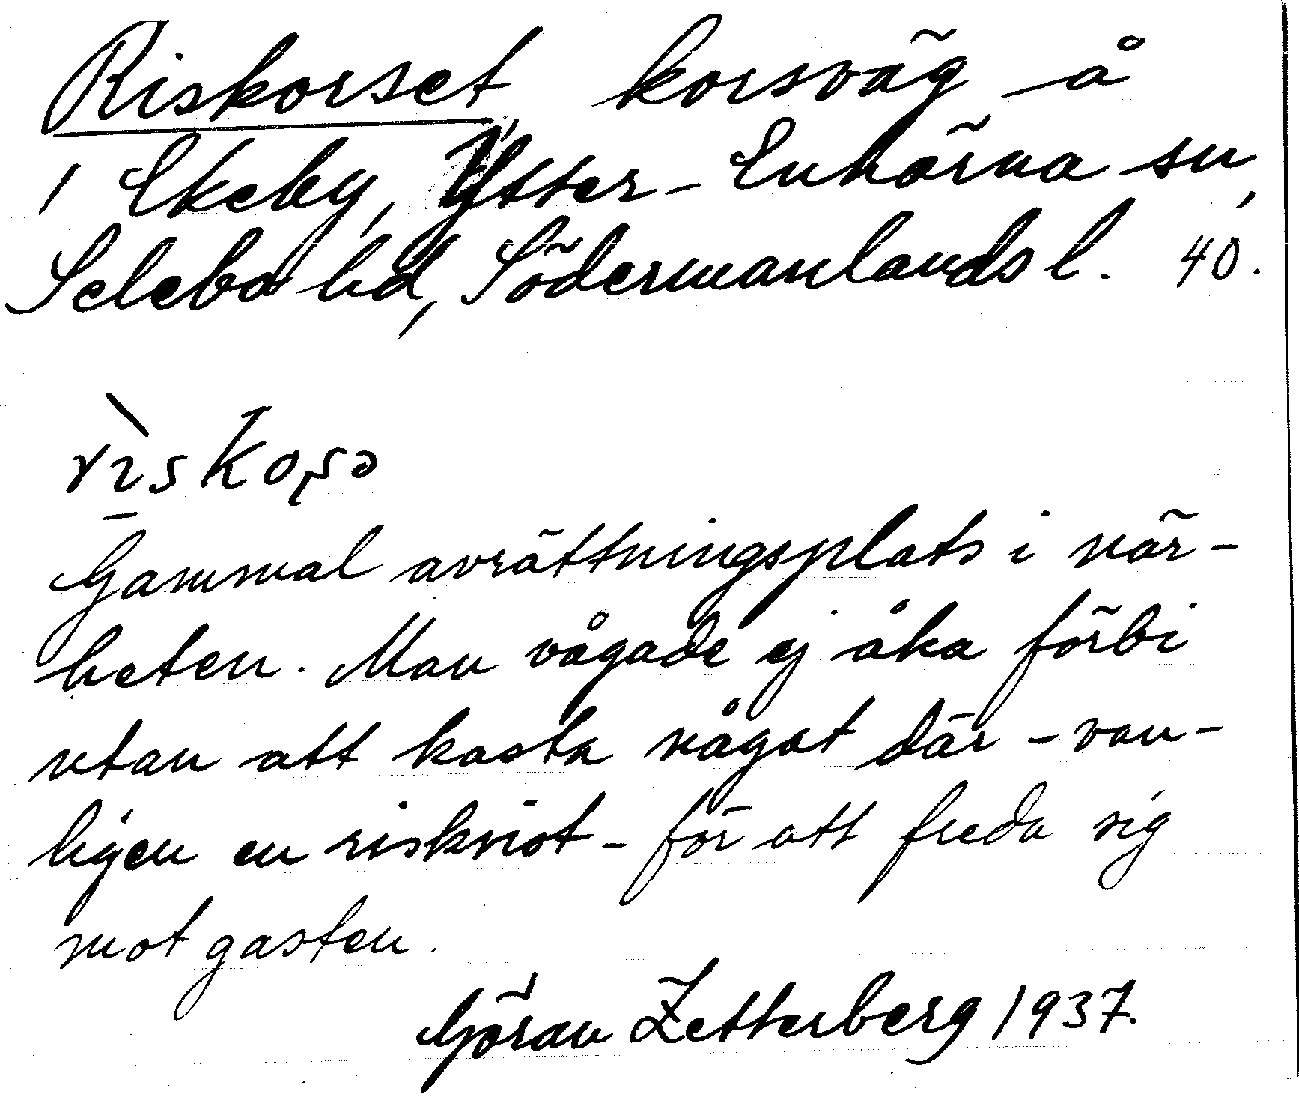 Riskorset, korsväg å
1 Ekeby, Ytter-Enhörna sn,
Selebo hd, Södermanlands l. 40.
Gammal avrättningsplats i när-
heten. Man vågade ej åka förbi
utan att kasta något där - van-
ligen en riskvist - för att freda sig
mot gasten.
Göran Zetterberg 1937.